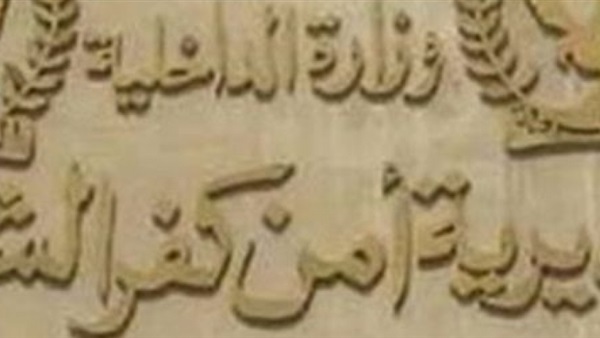 وزارة الداخلية
مديرية أمن كفر الشيخ